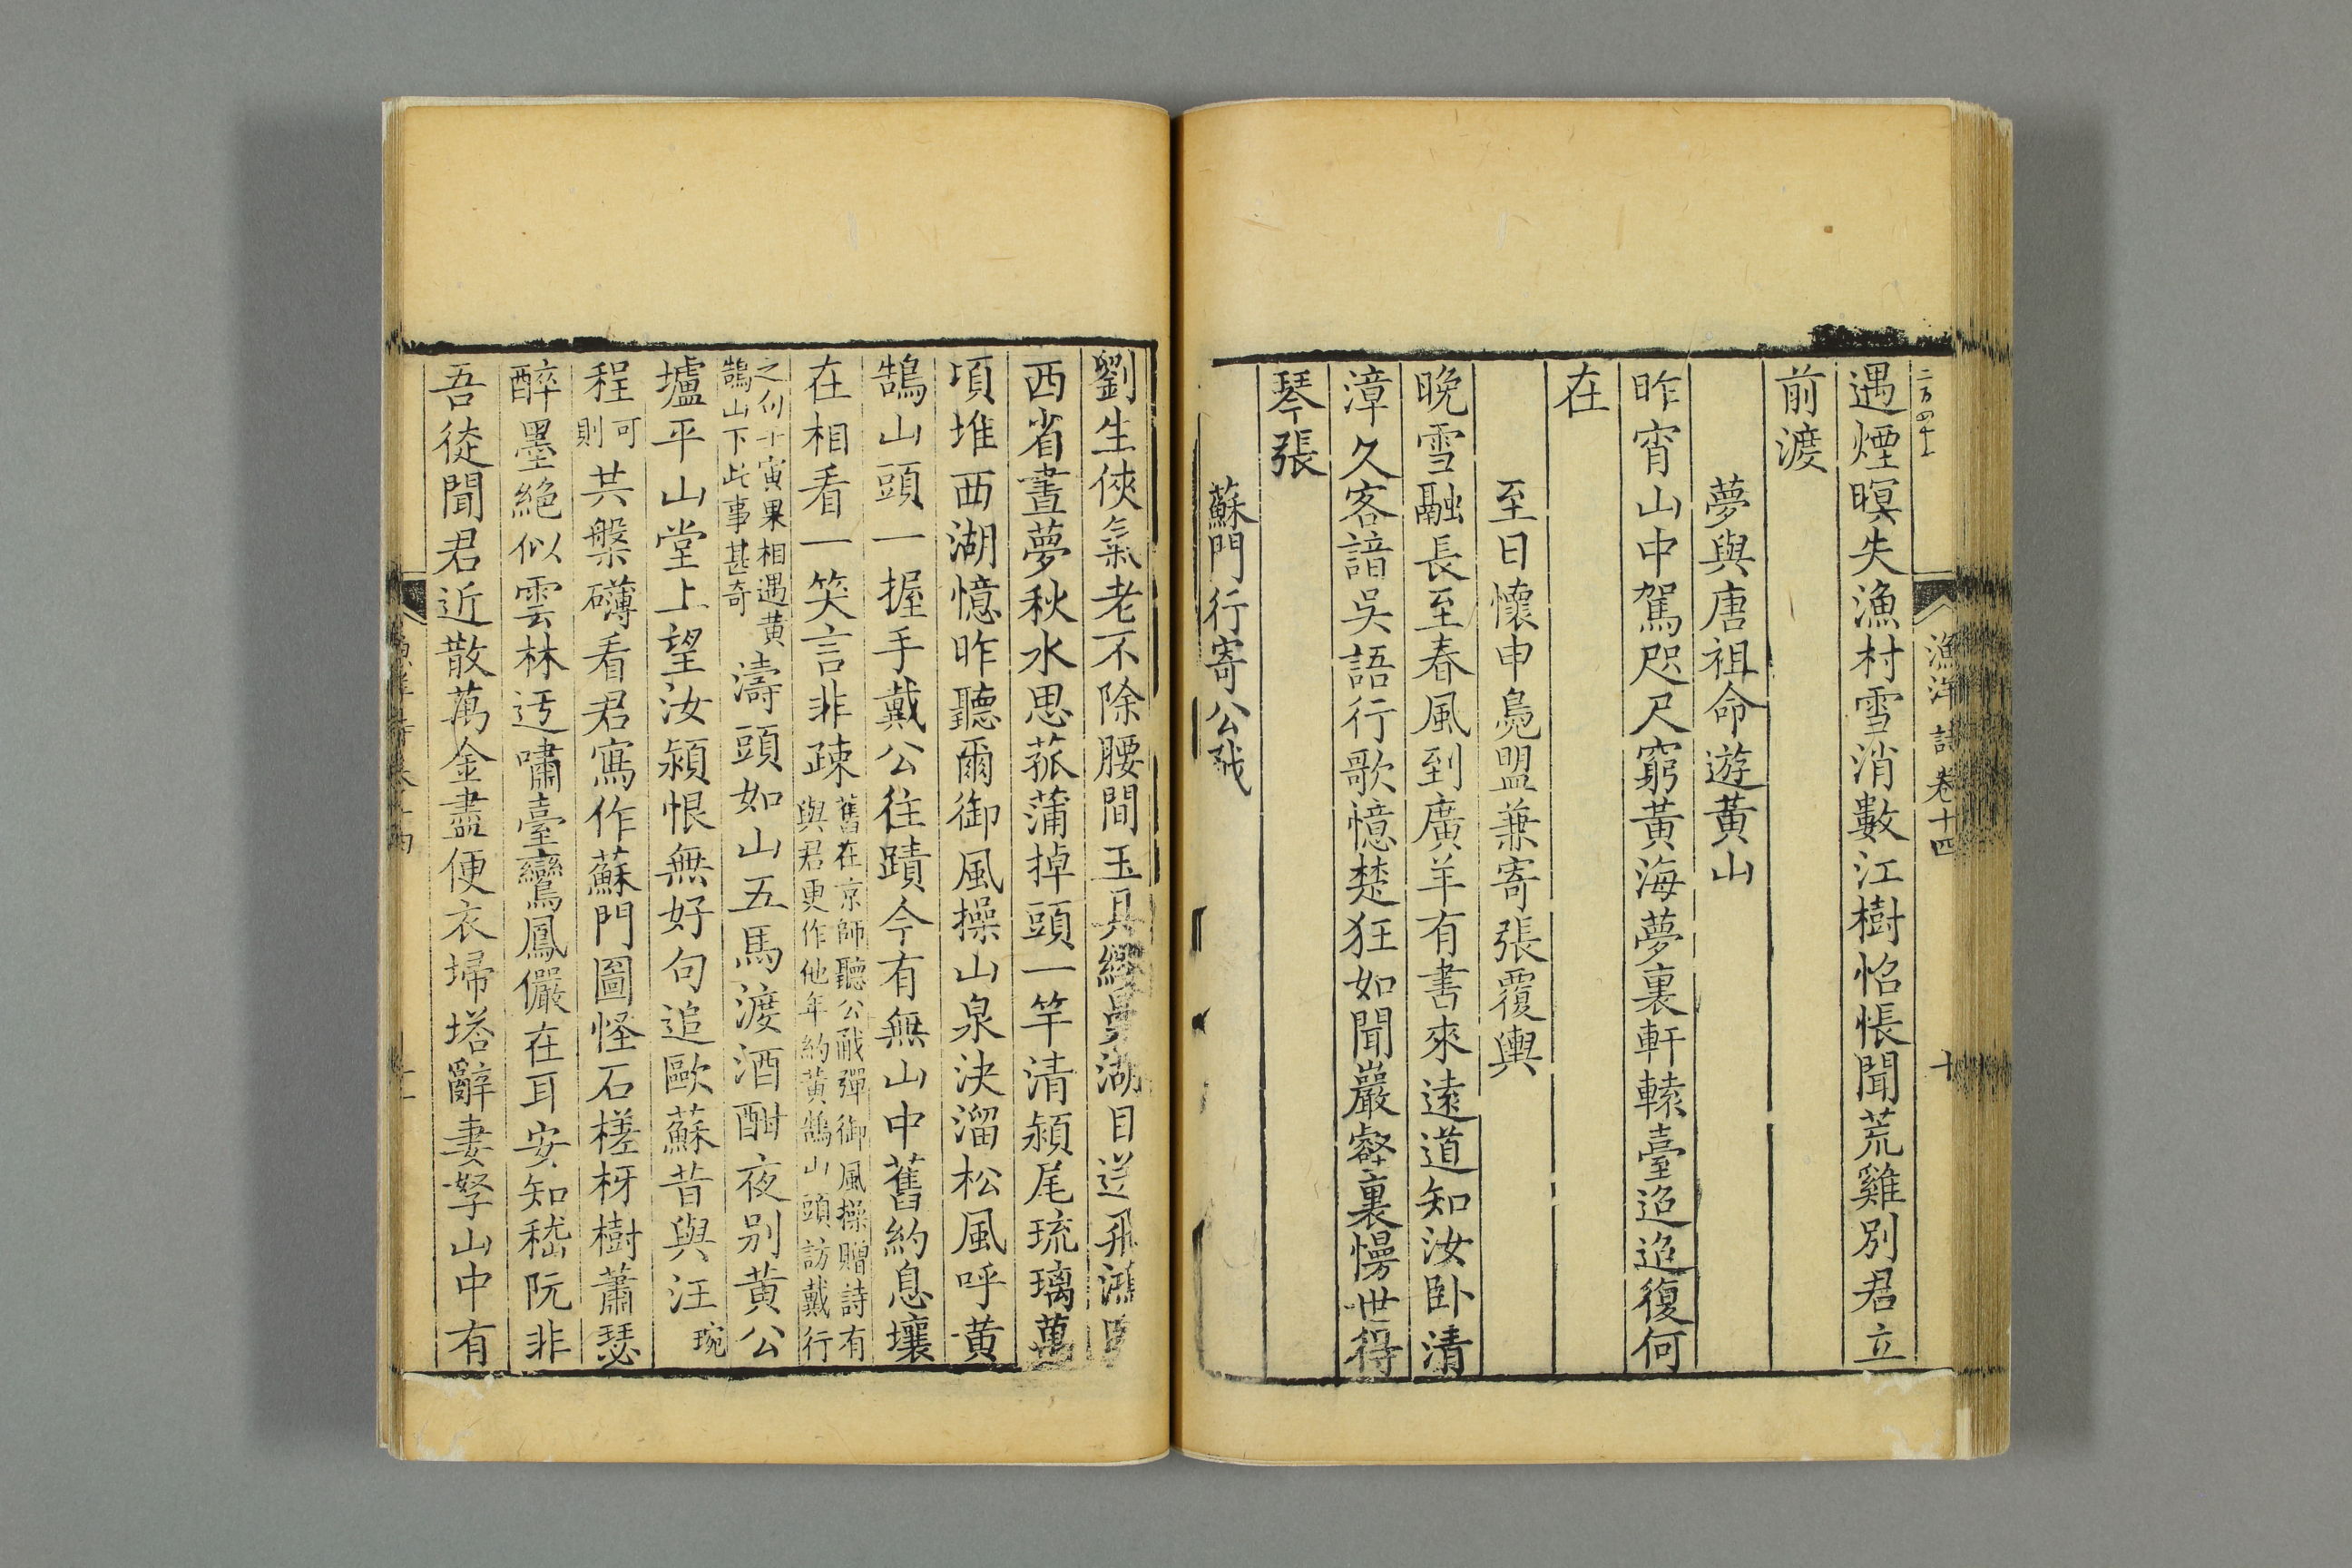 漁洋詩卷十四
十
遇煙暝失漁村雪消數江樹怊悵聞荒雞別君立
前渡
夢與唐祖命遊黃山
昨宵山中駕咫尺窮黃海夢裏軒轅臺迢迢復何
在
至日懷申鳧盟兼寄張覆輿
晚雪融長至春風到廣羊有書來遠道知汝卧清
漳久客諳吳語行歌憶楚狂如聞巖壑裏慢世得
琴張
蘇門行寄公㦷
劉生俠氣老不除腰間玉具縵胡目送飛鴻
西省晝夢秋水思菰蒲掉頭一竿清潁尾琉璃萬
頃堆西湖憶昨聽爾御風操山泉決溜松風呼黃
鵠山頭一握手戴公往蹟今有無山中舊約息壤
在相看一笑言非疎
舊在京師聽公㦷彈御風操贈詩有
與君更作他年約黃鵠山頭訪戴行
之句十寅果相遇黃
鵠山下此事甚奇
濤頭如山五馬渡酒酣夜別黃公
壚平山堂上望汝潁恨無好句追歐蘇昔與汪琬
程可則共槃礴看君寫作蘇門圖怪石槎枒樹蕭瑟
醉墨絕似雲林迂嘯臺鸞鳳儼在耳安知嵇阮非
吾徒聞君近散萬金盡便衣埽塔辭妻孥山中有